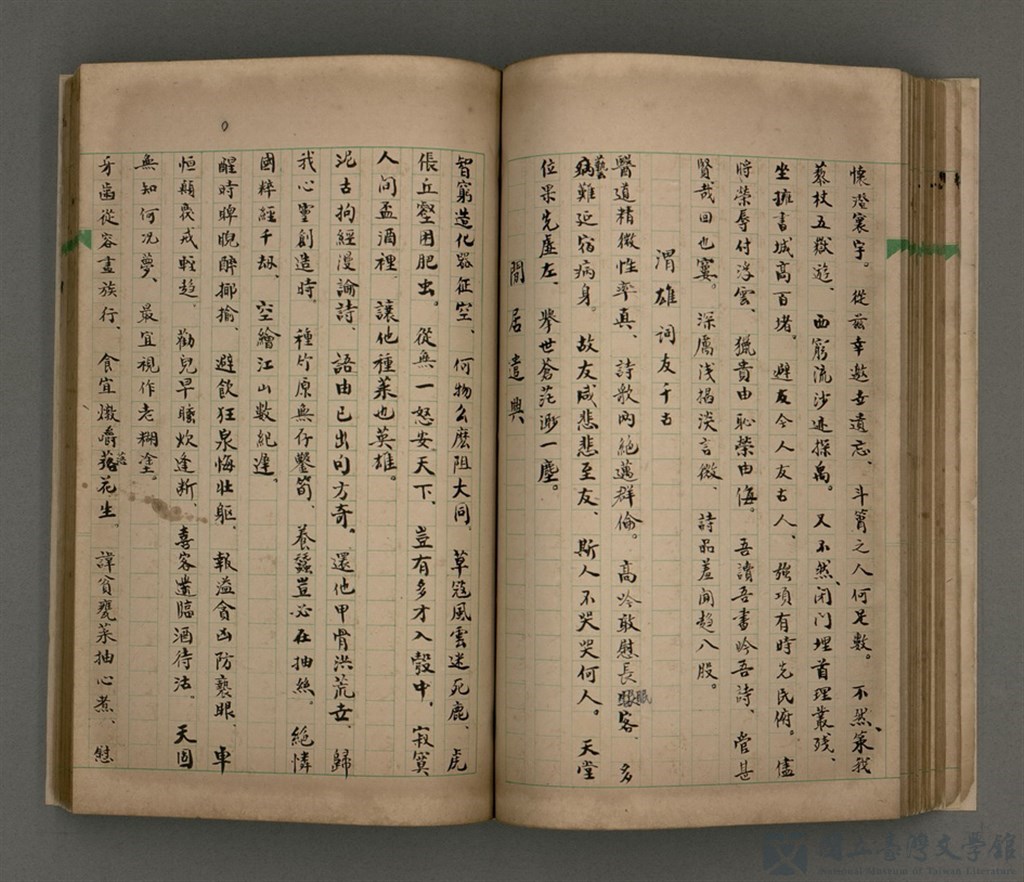 懷澄寰宇。從茲幸邀世遺忘、斗筲之人何足數。不然、策我
藜杖五嶽遊、西窮流沙迹探禹。又不然、閉门埋首理叢残、
坐擁書城高百堵。避友今人友古人、強項有時先民俯。儘
將榮辱付浮雲、獵貴由恥榮由侮。吾讀吾書吟吾詩、管甚
賢哉回也窶。深厲浅揭淡言微、詩品羞開趨八股。
渭雄詞友千古
醫道精微性率真、詩歌两絕邁群倫。高吟敢慰長眠客、多
藝
病難延宿病身。故友咸悲悲至友、斯人不哭哭何人。天堂
位果先虛左、擧世蒼茫渺一塵。
閒居遣興
智窮造化器征空、何物么麽阻大同。草寇風雲迷死鹿、虎
倀丘壑困肥虫。從無一怒安天下、豈有多才入彀中。寂寞
人间孟酒裡、讓他種菜也英雄。
泥古拘經漫論詩、語由己出句方奇。還他甲骨洪荒世、歸
我心靈創造時。種竹原無仔鑿筍、养蠶豈必在抽絲。絕憐
國粹經千劫、空繪江山數紀遲。
醒時睥睨醉揶揄、避飲狂泉悔壯軀。報溢會凶防褻眼、車
恒顛裹戒輕趋。勸兒早睡炊逢斷、喜客遺臨酒待沽。天固
無知何况夢、最宜視作老糊塗。
牙齒從容盡族行、食宜燉嚼落花生。諱貧甕菜抽心煮、慰
國立臺灣文學館
National Museum of Taiwan Literature